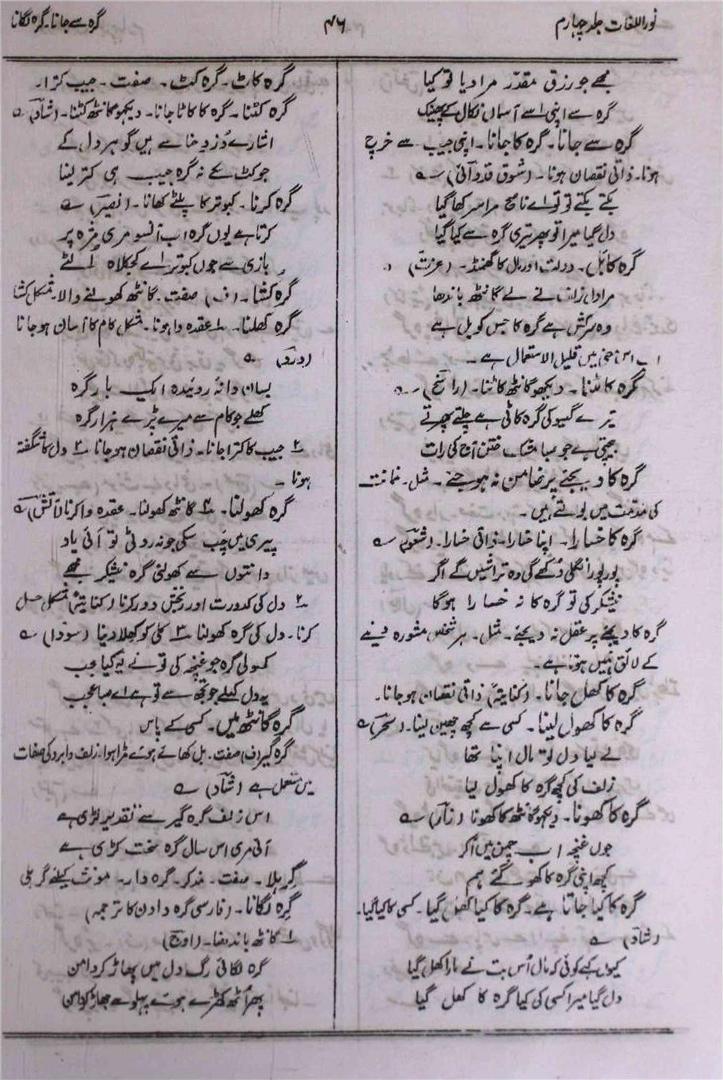 نوراللغات جلد چہارم
۴۶
گرہ سے جانا۔ گرہ لگانا
مجھے جو رزق مقدر مرا دیا تو کیا
گرہ سے اپنی اسے آسماں نکال کے پھینک
گرہ سے جانا۔ گرہ کا جانا۔ اپنی جیب سے خرچ
ہونا۔ ذاتی نقصان ہونا۔ (شوق قدوائی) ؎
بکتے بکتے تو تو اے ناصح مرا سر کھا گیا
دل گیا میرا تو پھر تیری گرہ سے کیا گیا
گرہ کا بل۔ دولت اور مال کا گھمنڈ۔ (عزت)
مرا دل زلف نے لے گانٹھ باندھا
وہ سرکش ہے گرہ کا جس کو بل ہے
اب اس معنی میں قلیل الاستعمال ہے۔
گرہ کاٹنا۔ دیکھو گانٹھ کاٹنا۔ (راسخ) ؎
تیرے گیسو کی گرہ کاٹی ہے چلتے پھرتے
بیچتی ہے جو صبا مشک ختن آج کی رات
گرہ کا دیجئے پر ضامن نہ ہوجئے۔ مثل۔ ضمانت
کی مذمت میں بولتے ہیں۔
گرہ کا خسارا۔ اپنا خسارا۔ ذاتی خسارا۔ (شعور) ؎
پور پور انگلی دُکھے گی وہ تراشیں گے اگر
نیشکر کی تو گرہ کا نہ خسارا ہوگا
گرہ کا دیجئے پر عقل نہ دیجئے۔ مثل۔ ہر شخص مشورہ دینے
کے لائق نہیں ہوتا ہے۔
گرہ کا کھل جانا۔ (کنایۃً) ذاتی نقصان ہوجانا۔
گرہ کا کھول لینا۔ کسی سے کچھ چھین لینا۔ (سحر) ؎
لے لیا دل تو مال اپنا تھا
زلف کی کچھ گرہ کا کھول لیا
گرہ کا کھونا۔ دیکھو گانٹھ کا کھونا (نار) ؎
جوں غنچہ اب چمن میں آکر
کچھ اپنی گرہ کا کھو گئے ہم
گرہ کا کیا جاتا ہے۔ گرہ کا کیا کھل گیا۔ کسی کا کیا گیا۔
(شاد) ؎
کیوں کہے کوئی کہ مال اُس بت نے مارا کھل گیا
دل گیا میرا کسی کی کیا گرہ کا کھل گیا
گرہ کاٹ۔ گرہ کٹ۔ صفت۔ جیب کترا۔
گرہ کٹنا۔ گرہ کا کاٹا جانا۔ دیکھو گانٹھ کٹنا۔ (شاد) ؎
اشارے دُزد حنا سے ہیں گوہر دل کے
جو کٹ سکے نہ گرہ جیب ہی کتر لینا
گرہ کرنا۔ کبوتر کا پلٹے کھانا۔ (نصیر) ؎
کرتا ہے یوں گرہ اب آنسو مری مژہ پر
بازی سے جوں کبوتر اے کجکلاہ الٹے
گرہ کشا۔ (ف) صفت۔ گانٹھ کھولنے والا۔ مشکل کشا
گرہ کھلنا۔ ۱ عقدہ وا ہونا۔ مشکل کام کا آسان ہوجانا
(درد) ؎
بسان دانۂ روئیدہ ایک بار گرہ
کھلے جو کام سے میرے پڑے ہزار گرہ
۲ جیب کا کترا جانا۔ ذاتی نقصان ہوجانا ۳ دل کا شگفتہ
ہونا۔
گرہ کھولنا۔ ۱ گانٹھ کھولنا۔ عقدہ وا کرنا (آتش) ؎
پیری میں چب سکی جو نہ روٹی تو آئی یاد
دانتوں سے کھولنی گرہ نیشکر مجھے
۲ دل کی کدورت اور رنجش دور کرنا (کنایۃً) مشکل حل
کرنا۔ دل کی گرہ کھولنا ۳ کلی کو کھلا دینا (سودا) ؎
کھولی گرہ جو غنچہ کی تو نے تو کیا عجب
یہ دل کھلے جو تجھ سے تو ہے اے صبا عجب
گرہ گانٹھ میں۔ کسی کے پاس
گرہ گیر (ف) صفت۔ بل کھائے ہوئے مڑا ہوا۔ زلف و ابرو کی صفات
میں مستعمل ہے (شاد) ؎
اس زلف گرہ گیر سے تقدیر لڑی ہے
آئی مری اس سال گرہ سخت کڑی ہے
گرہیلا۔ صفت۔ مذکر۔ گرہ دار۔ مونث کیلئے گرہیلی
گرہ لگانا۔ (فارسی گرہ دادن کا ترجمہ)
۱ گانٹھ باندھنا۔ (اوج)
گرہ لگائی رگ دل میں پھاڑ کر دامن
پھر اُٹھ کھڑے ہوئے پہلو سے جھاڑ کر دامن